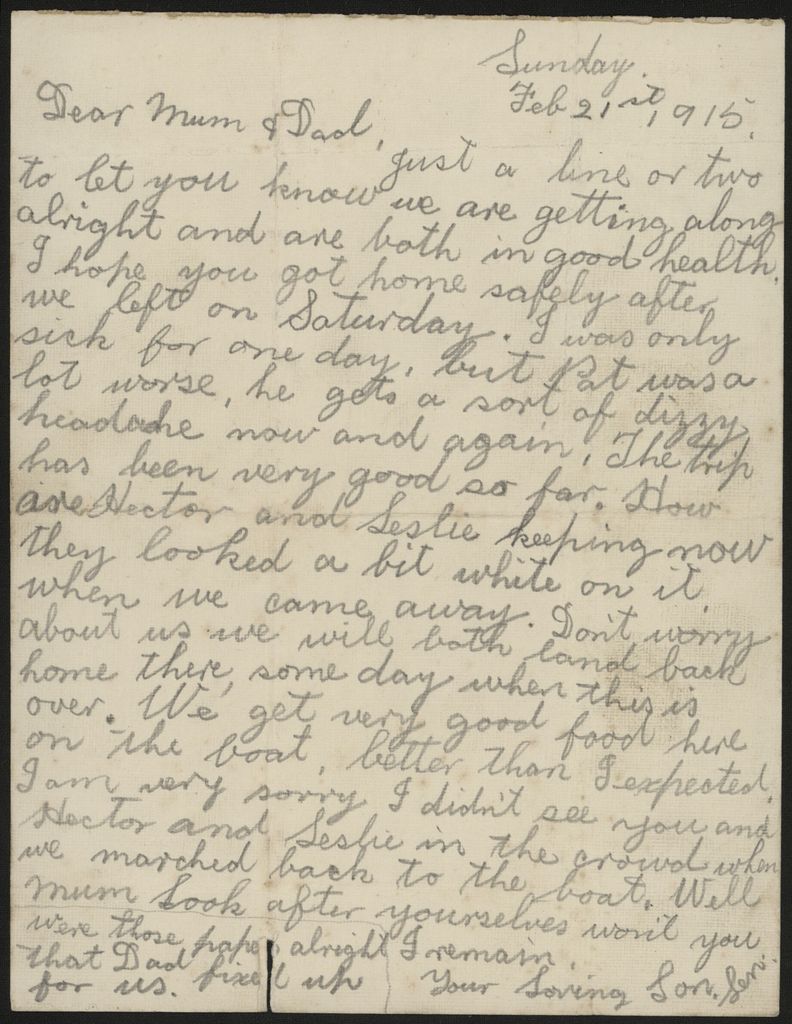 Sunday.
Feb 21st, 1915.
Dear Mum & Dad,
just a line or two
to let you know we are getting along
alright and are both in good health.
I hope you got home safely after
we left on Saturday. I was only
sick for one day, but Pat was a
lot worse, he gets a sort of dizzy
headache now and again. The trip
has been very good so far. How
are Hector and Leslie keeping now
they looked a bit white on it
when we came away. Don't worry
about us we will both land back
home there, some day when this is
over. We get very good food here
on the boat, better than I expected.
I am very sorry I didn't see you and
Hector and Leslie in the crowd when
we marched back to the boat. Well
Mum Look after yourselves won't you
were those papers alright I remain
that Dad fixed up Your Loving Son.
for us.